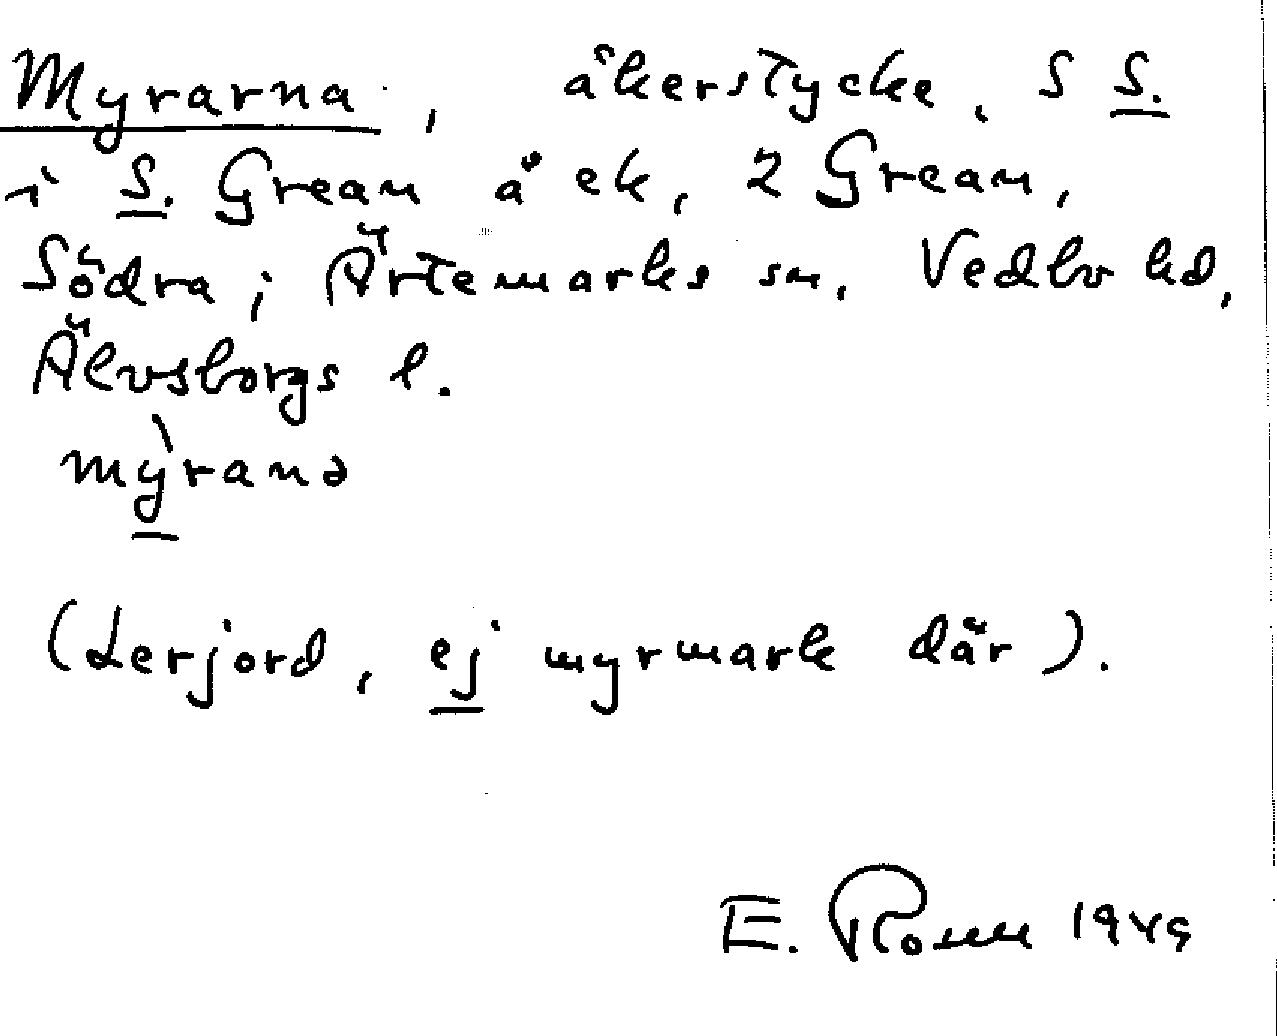 Myrarna, åkerstycke, S S.
i S. Grean å ek, 2 Grean,
Södra; Ärtemarks sn, Vedbo hd,
Älvsborgs l.
mỳranə
(Lerjord, ej myrmark där).
E. Rosen 1949